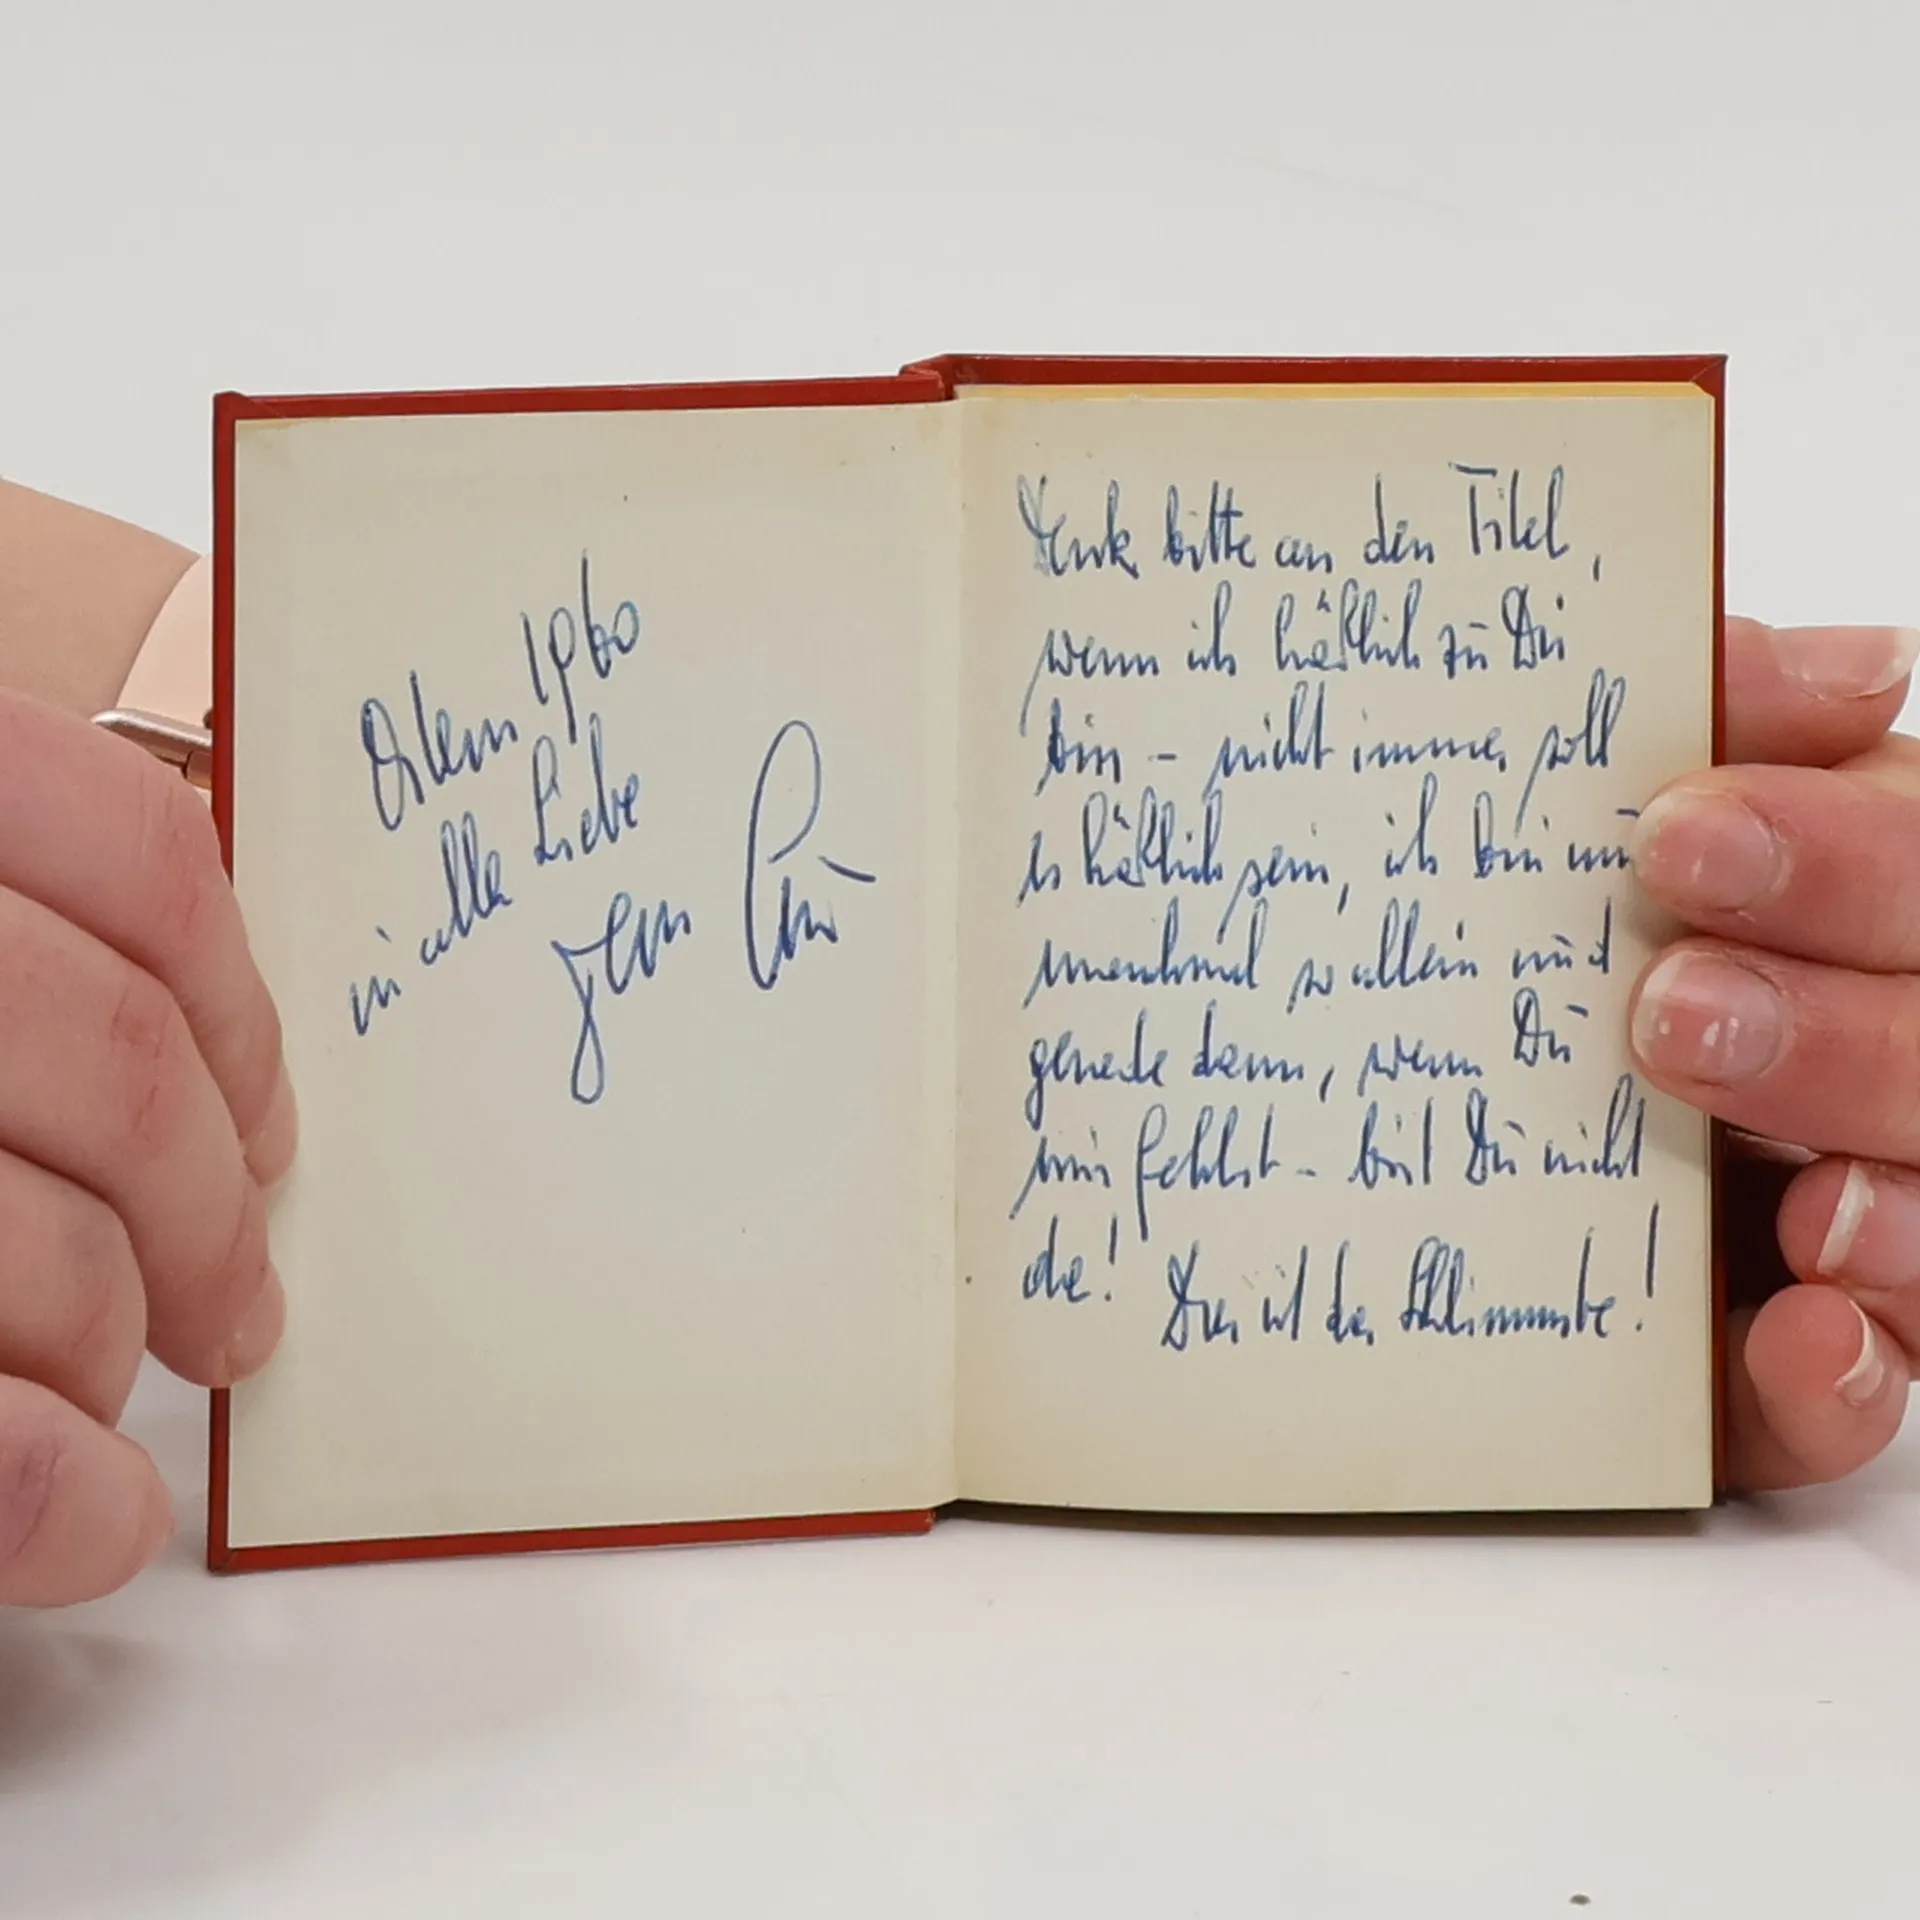 Ostern 1960
in alle Liebe
Denk bitte an den Titel,
wenn ich häßlich zu Dir
bin – nicht immer soll
es häßlich sein, ich bin nur
manchmal so allein und
gerade dann, wenn Du
mir fehlst – bist Du nicht
da! Das ist das Schlimmste!